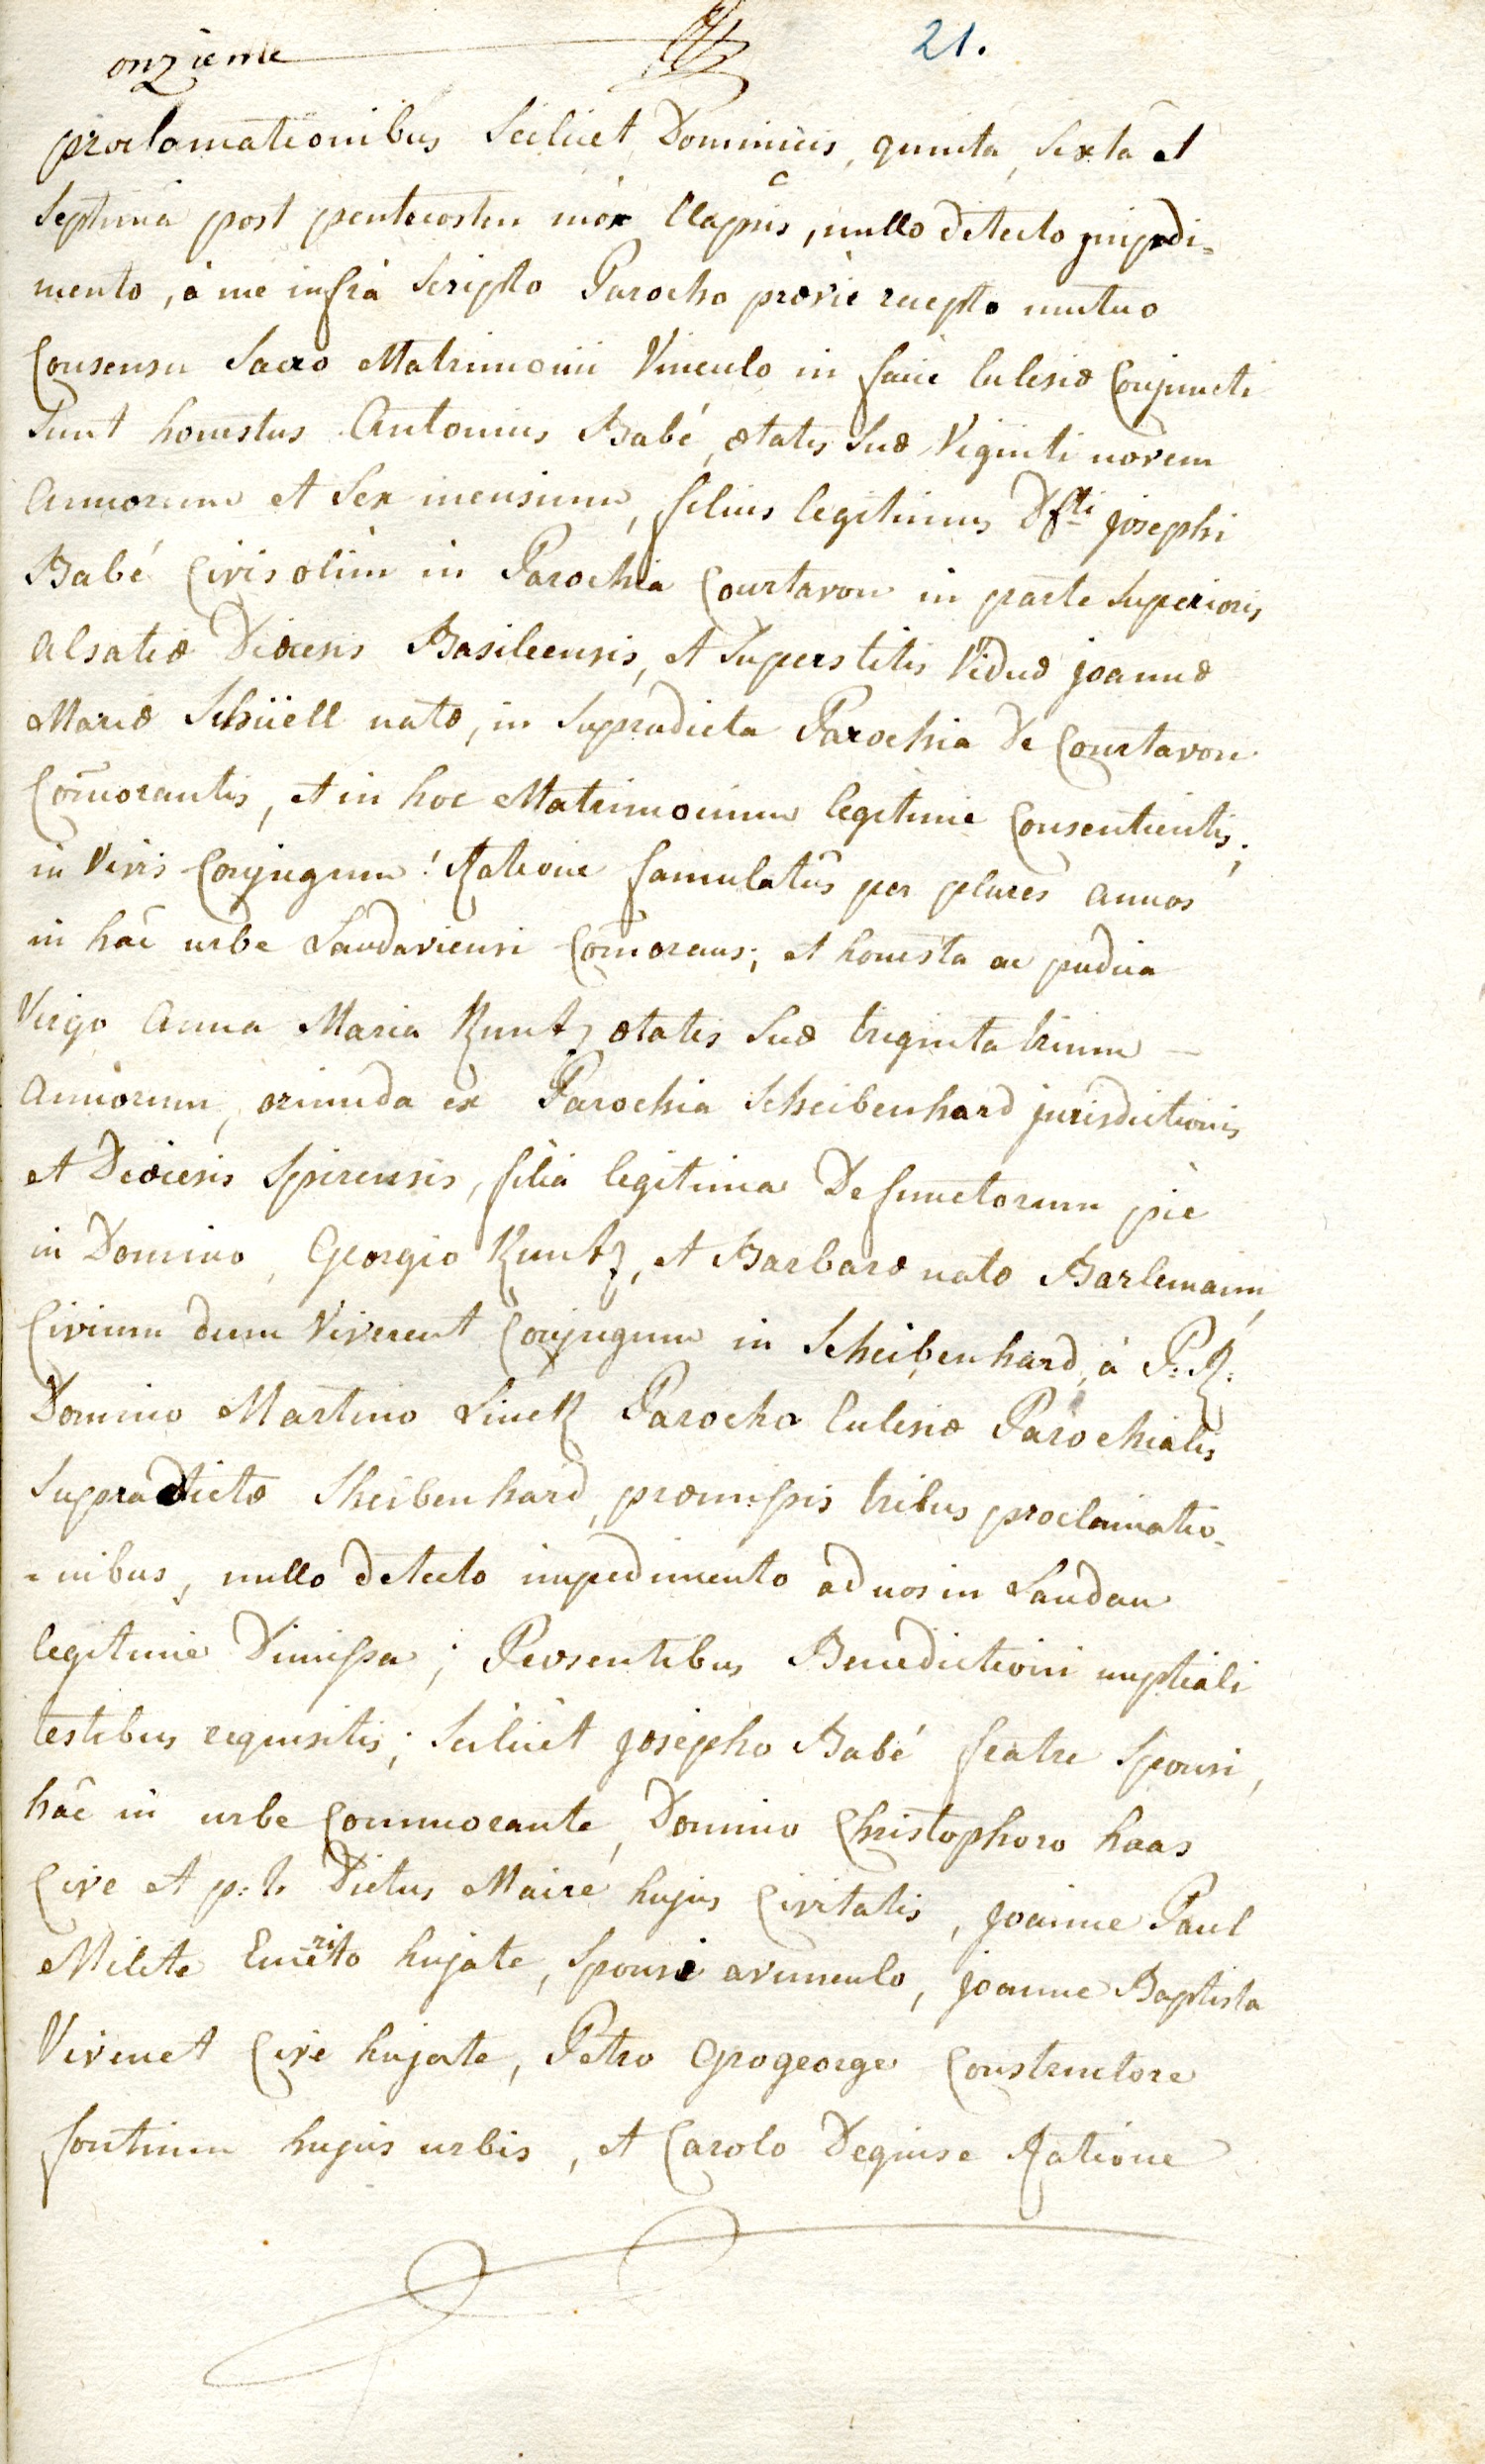 onzieme
21.
proclamationibus Scilicet Dominicis, quinta, Sexta et
Septima post pentecosten mox Elapsis, nullo detecto impedi=
mento, à me infrà Scripto Parocho prævie recepto mutuo
Consensu Sacro Matrimonii Vinculo in facie Eclesiæ Conjuncti
Sunt honestus Antonius Babé, ætatis Suæ Viginti novem
annorum et Sex mensium, filius legitimus Dfti josephi
Babé Civis olim in Parochia Courtavon in parte Superioris
alsatiæ Diæcesis Basileensis, et Superstitis Viduæ joannæ
Mariæ Schüell natæ, in Supradicta Parochia De Courtavon
Com̄orantis, et in hoc Matrimonium legitime Consentientis;
in Vivis Conjugum! Ratione famulatûs per plures annos
in hâc urbe Landaviensi Com̄orans; et honesta ac pudica
Virgo anna Maria Kuntz ætatis Suæ triginta trium
annorum, oriunda ex Parochia Scheibenhard jurisdictionis
et Diœcesis Spirensis, filia legitima Defunctorum piè
in Domino, Georgio Kuntz, et Barbaræ natæ Barlemann,
Civium dum Viverent Conjugum in Scheibenhard, à P: R:
Domino Martino Linck Parocho Eclesiæ Parochialis
Supradictæ Sheibenhard, præmissis tribus proclamatio-
=nibus, nullo detecto impedimento ad nos in Landau
legitime Dimissa; Præsentibus Benedictioni nuptiali
testibus requisitis; Scilicet josepho Babé fratre Sponsi,
hâc in urbe Commorante, Domino Christophoro haas
Cive et p: t. Dictus Maire hujus Civitatis, joanne Paul
Milite Emerito hujate, Sponsi avunculo, joanne Baptista
Vivenet Cive hujate, Petro Grogeorge Constructore
fontium hujus urbis, et Carolo Deguise Ratione